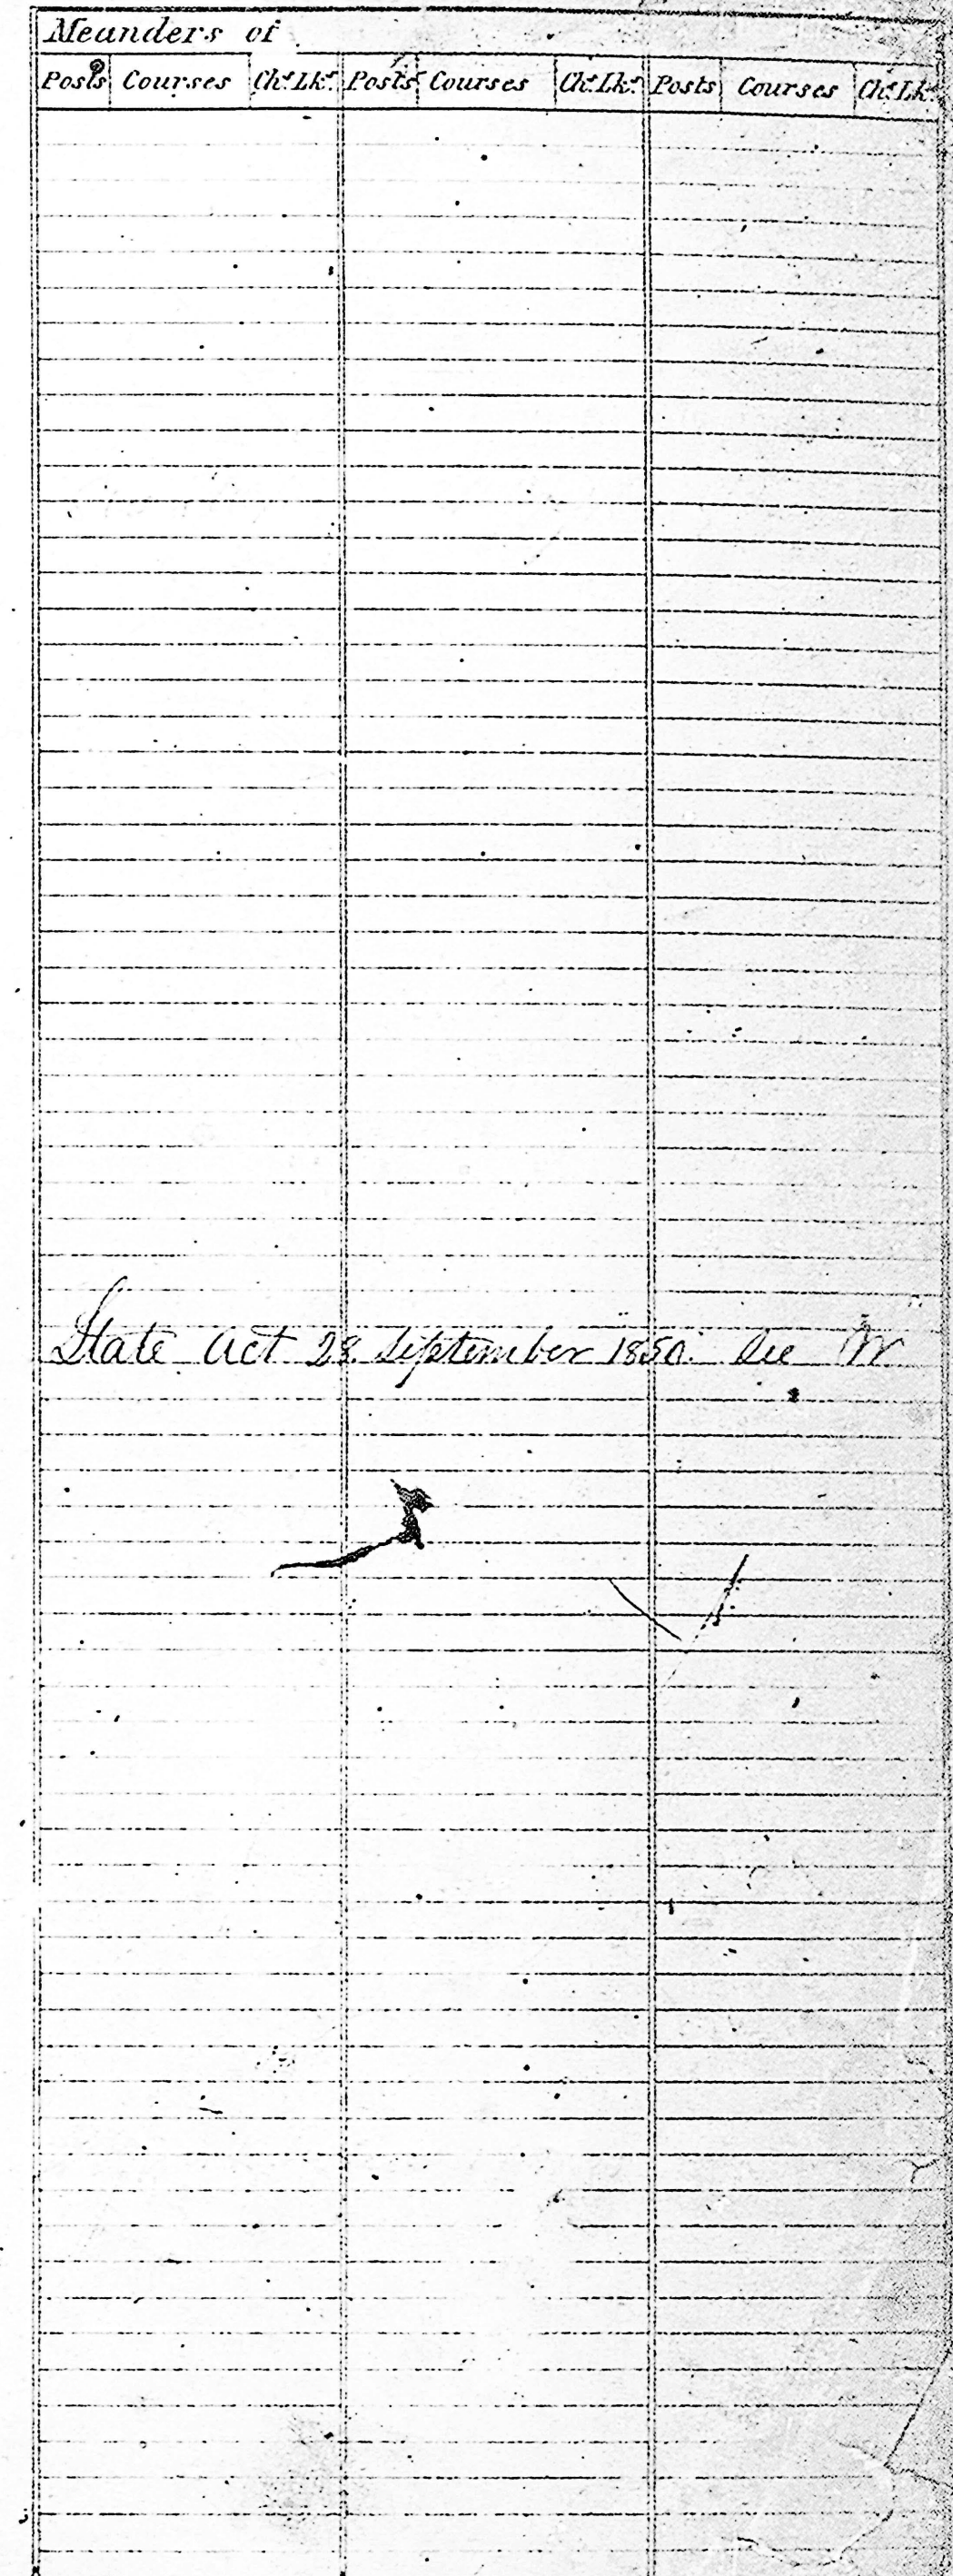 Meanders of
Posts Courses Chs. Lks. Posts Courses Chs. Lks. Posts Courses Chs. Lks.
State Act 28. September 1850. See